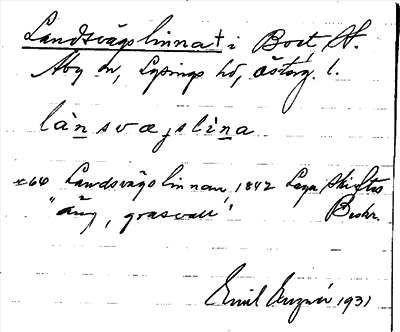 Landsvägslinna† i Bort, St.
Åby sn, Lysings hd, Österg. l.
lànsvæ̨slìna
Landsvägslinnan, 1842 Laga Skiftes
"äng, gräsvall" Beskr.
Emil 1931